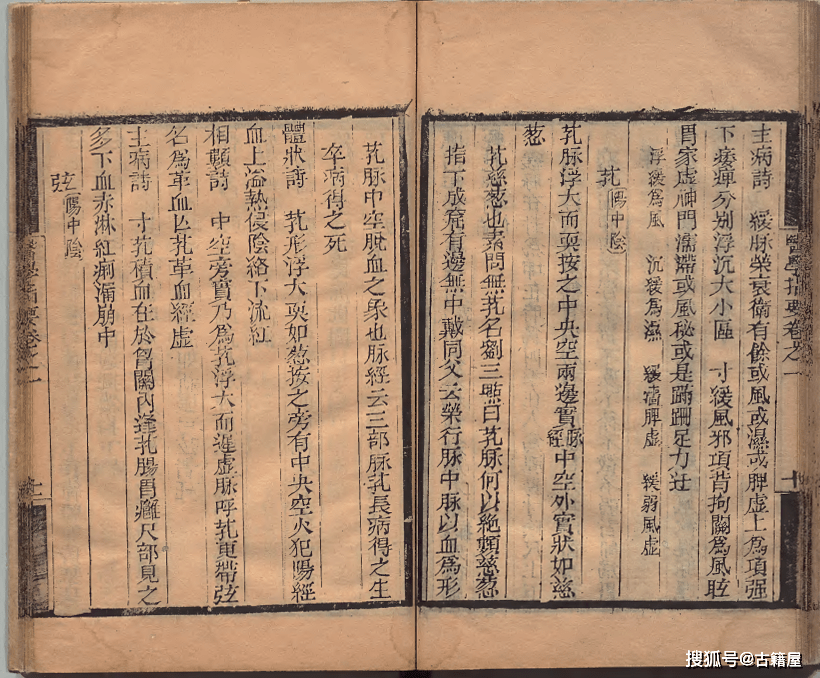 醫學指要卷之一 十
主病詩　緩脉榮衰衛有餘或風或濕或脾虛上爲項强
下痿痺分別浮沉大小區　寸緩風邪項背拘關爲風眩
胃家虛神門濡滯或風秘或是蹣跚足力迂
浮緩爲風　沉緩爲濕　緩濇脾虛　緩弱風虛
芤陽中陰
芤脉浮大而耎按之中央空兩邊實脉經中空外實狀如慈
葱
芤慈葱也素問無芤名劉三㸃曰芤脉何以絶類慈葱
指下成窟有邊無中戴同父云榮行脉中脉以血爲形
芤脉中空脫血之象也脉經云三部脉芤長病得之生
卒病得之死
體狀詩　芤形浮大耎如葱按之旁有中央空火犯陽經
血上溢熱侵陰絡下流紅
相類詩　中空旁實乃爲芤浮大而遲虛脉呼芤更帶弦
名爲革血亡芤革血經虛
主病詩　寸芤積血在於胷關內逢芤腸胃癰尺部見之
多下血赤淋紅痢漏崩中
弦陽中陰
搜狐号@古籍屋